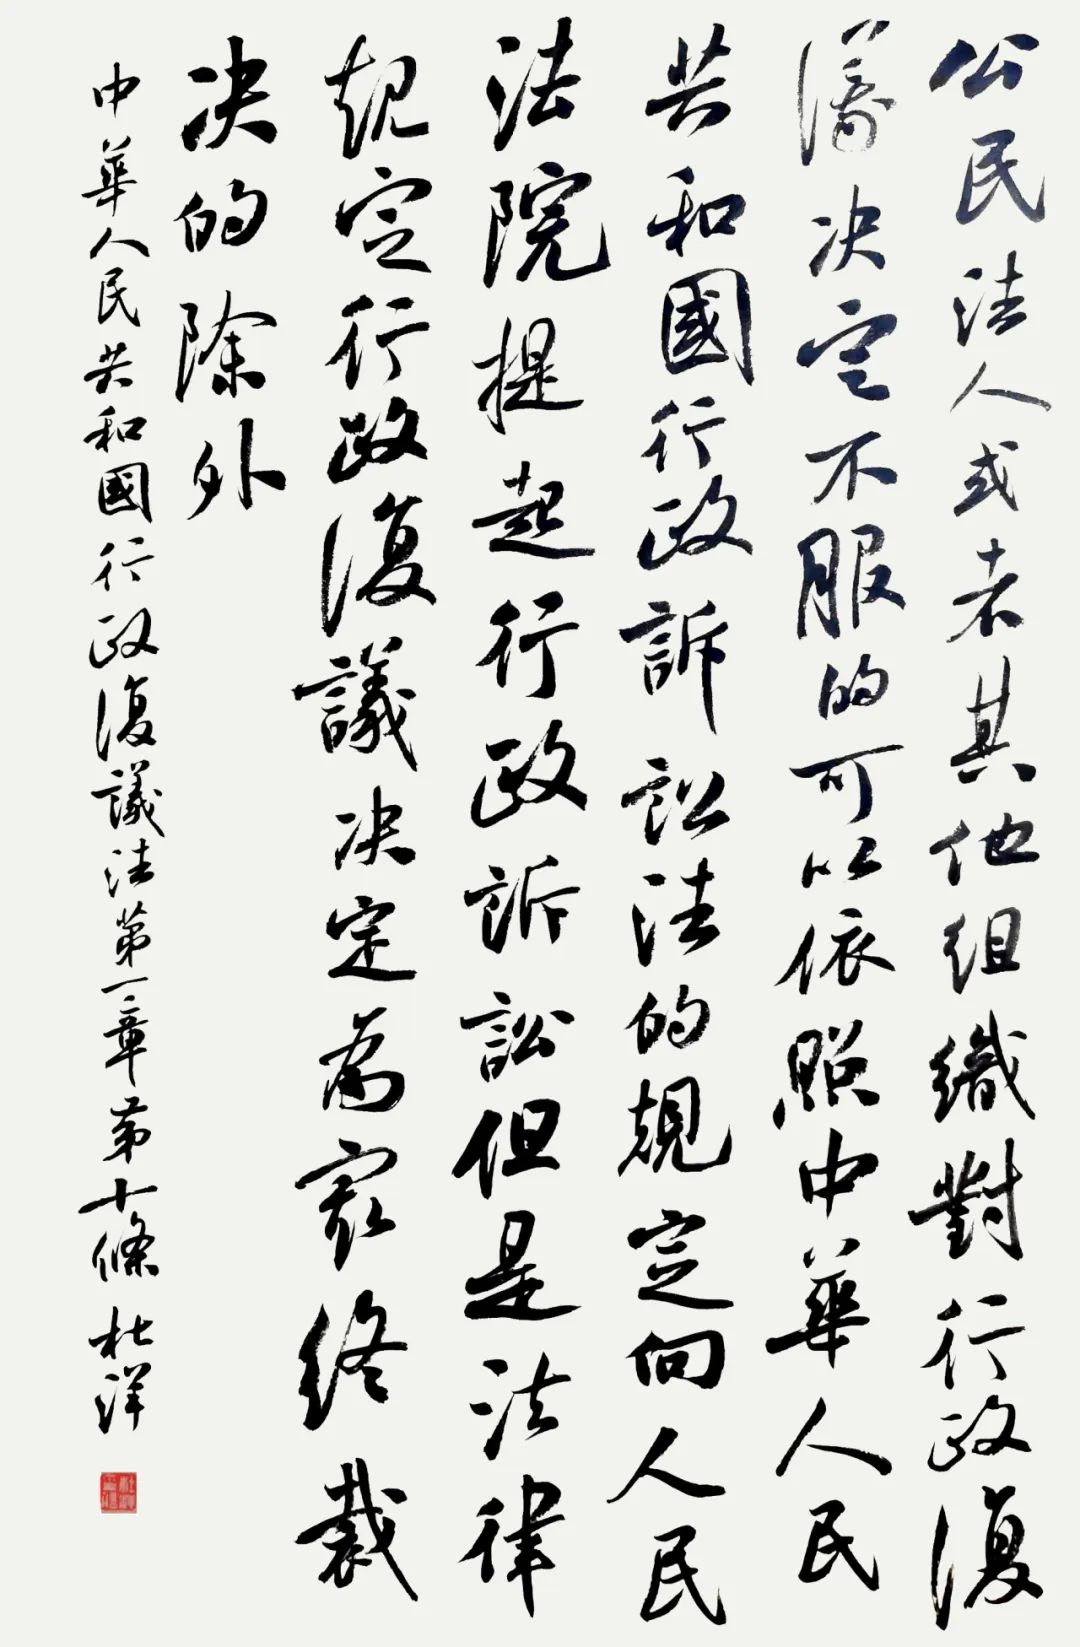 公民法人或者其他組織對行政復
議決定不服的可以依照中華人民
共和國行政訴訟法的規定向人民
法院提起行政訴訟但是法律
規定行政復議決定為最終裁
決的除外
中華人民共和國行政復議法第一章第十條杜洋